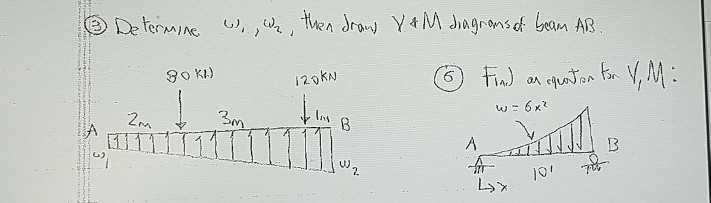 ③ Determine w₁, w₂, then draw V & M diagrams of beam AB.
80 KN
120KN
2m
3m
1m
A
B
w₁
w₂
⑥ Find an equation for V, M:
w = 6x²
A
B
10'
x